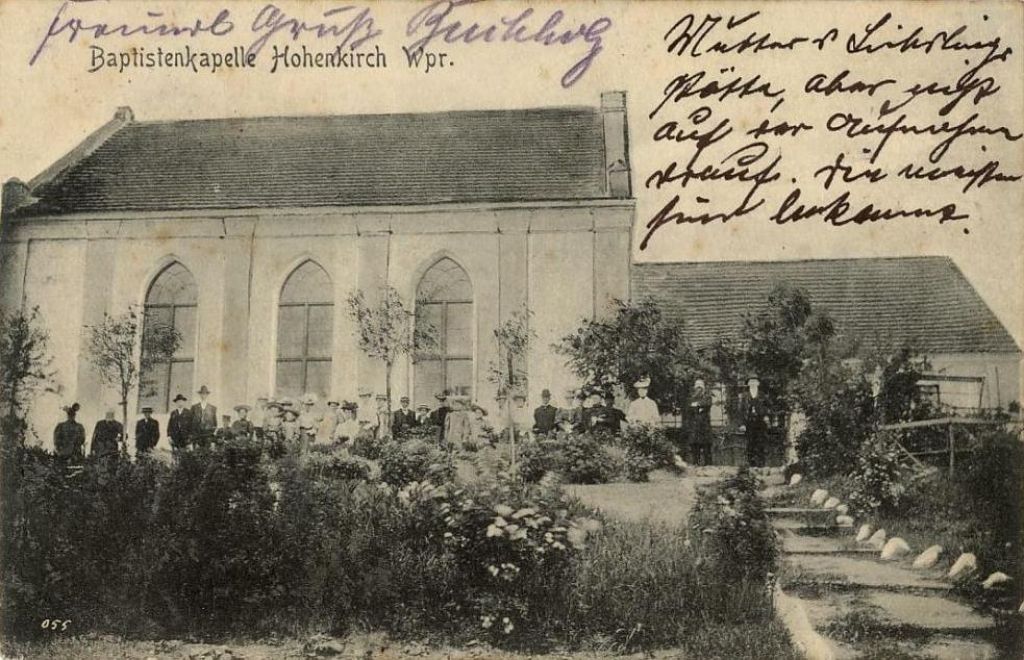 Freundl Gruß Buchholz
Baptistenkapelle Hohenkirch Wpr.
Mutter's Lieblings
Stätte, aber nicht
auf der Aufnahme
drauf. Die meisten
sind bekannt.
055